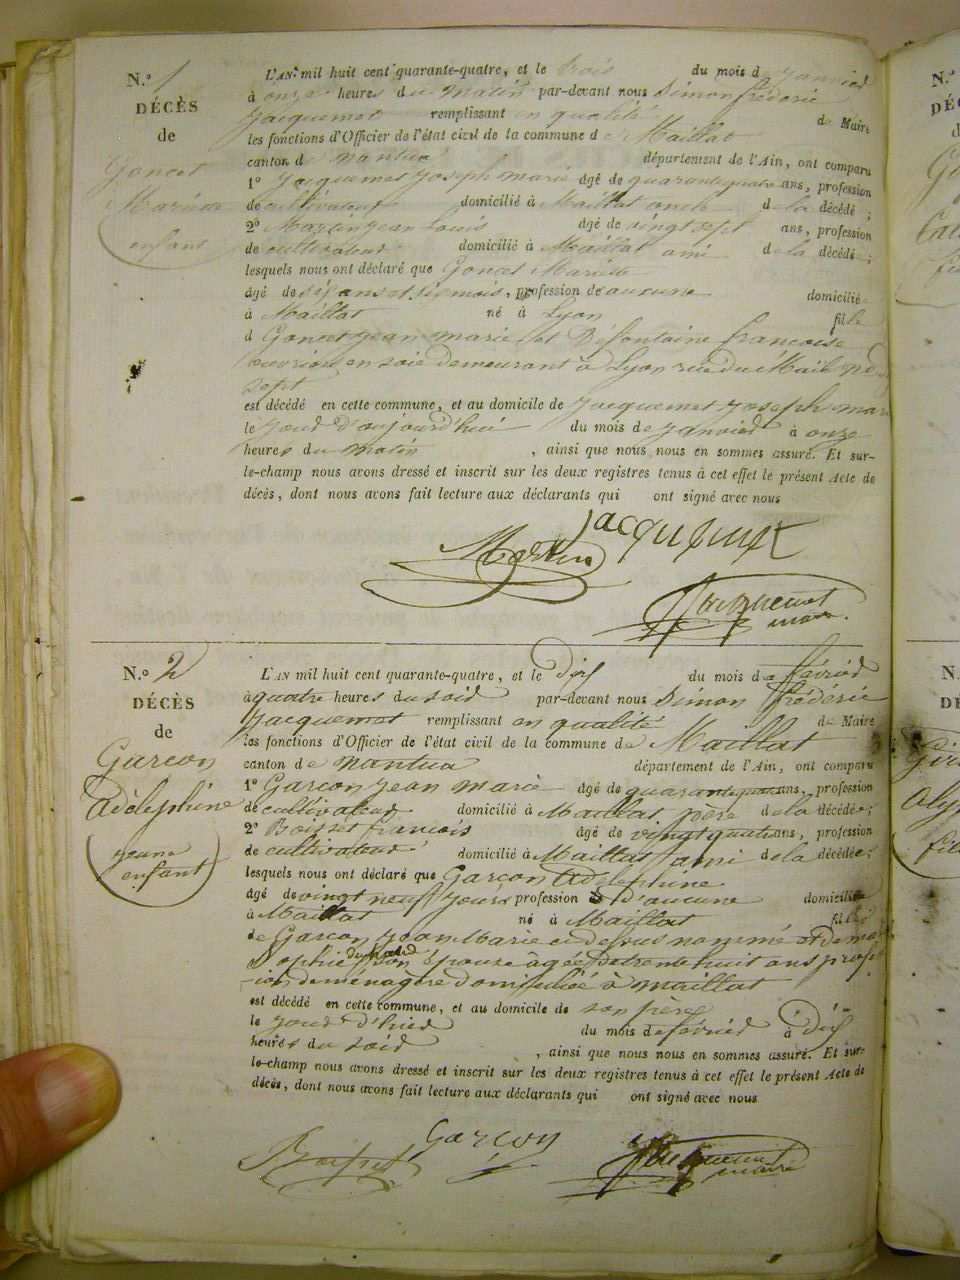 N.° 1
DÉCÈS
de
Goncet
Mariette
enfant
L'AN mil huit cent quarante-quatre, et le trois du mois de janvier
à onze heures du matin par-devant nous Simon frédéric
Jacquemet remplissant en qualité de Maire
les fonctions d'Officier de l'état civil de la commune de Maillat
canton de nantua département de l'Ain, ont comparu
1° Jacquemet Joseph marie âgé de quarante quatre ans, profession
de cultivateur domicilié à Maillat oncle de la décédé ;
2° Martin jean Louis âgé de vingt sept ans, profession
de cultivateur domicilié à Maillat ami de la décédé ;
lesquels nous ont déclaré que Goncet Mariette
âgé de ans et mois, profession de aucune domicilié
à Maillat né à Lyon fille
d Goncet jean marie et Défontaine francoise
ouvrier en soie demeurant à Lyon rue du Mail n°
sept
est décédé en cette commune, et au domicile de Jacquemet Joseph mari
le jour d'aujourd'hui du mois de janvier à onze
heures du matin , ainsi que nous nous en sommes assuré. Et sur-
le-champ nous avons dressé et inscrit sur les deux registres tenus à cet effet le présent Acte de
décès, dont nous avons fait lecture aux déclarants qui ont signé avec nous
jacquemet
Martin
Jacquemet
maire.
N.° 2
DÉCÈS
de
Garcon
adèlephine
jeune
enfant
L'AN mil huit cent quarante-quatre, et le dix du mois de février
à quatre heures du soir par-devant nous Simon frédéric
Jacquemet remplissant en qualité de Maire
les fonctions d'Officier de l'état civil de la commune de Maillat
canton de nantua département de l'Ain, ont comparu
1° Garcon jean marie âgé de quarante ans, profession
de cultivateur domicilié à Maillat père de la décédée ;
2° Boisset francois âgé de vingt quatre ans, profession
de cultivateur domicilié à Maillat ami de la décédée ;
lesquels nous ont déclaré que Garcon adelephine
âgé de vingt neuf jours profession d'aucune domicilié
à Maillat né à Maillat fille
de Garcon Jean Marie ci dessus nommé et de
Sophie son épouse âgée de trente huit ans profes
-sion de ménagère domiciliée à maillat
est décédé en cette commune, et au domicile de son père
le jour d'hier du mois de février à dix
heures du soir , ainsi que nous nous en sommes assuré. Et sur-
le-champ nous avons dressé et inscrit sur les deux registres tenus à cet effet le présent Acte de
décès, dont nous avons fait lecture aux déclarants qui ont signé avec nous
Boisset
Garcon
Jacquemet
maire